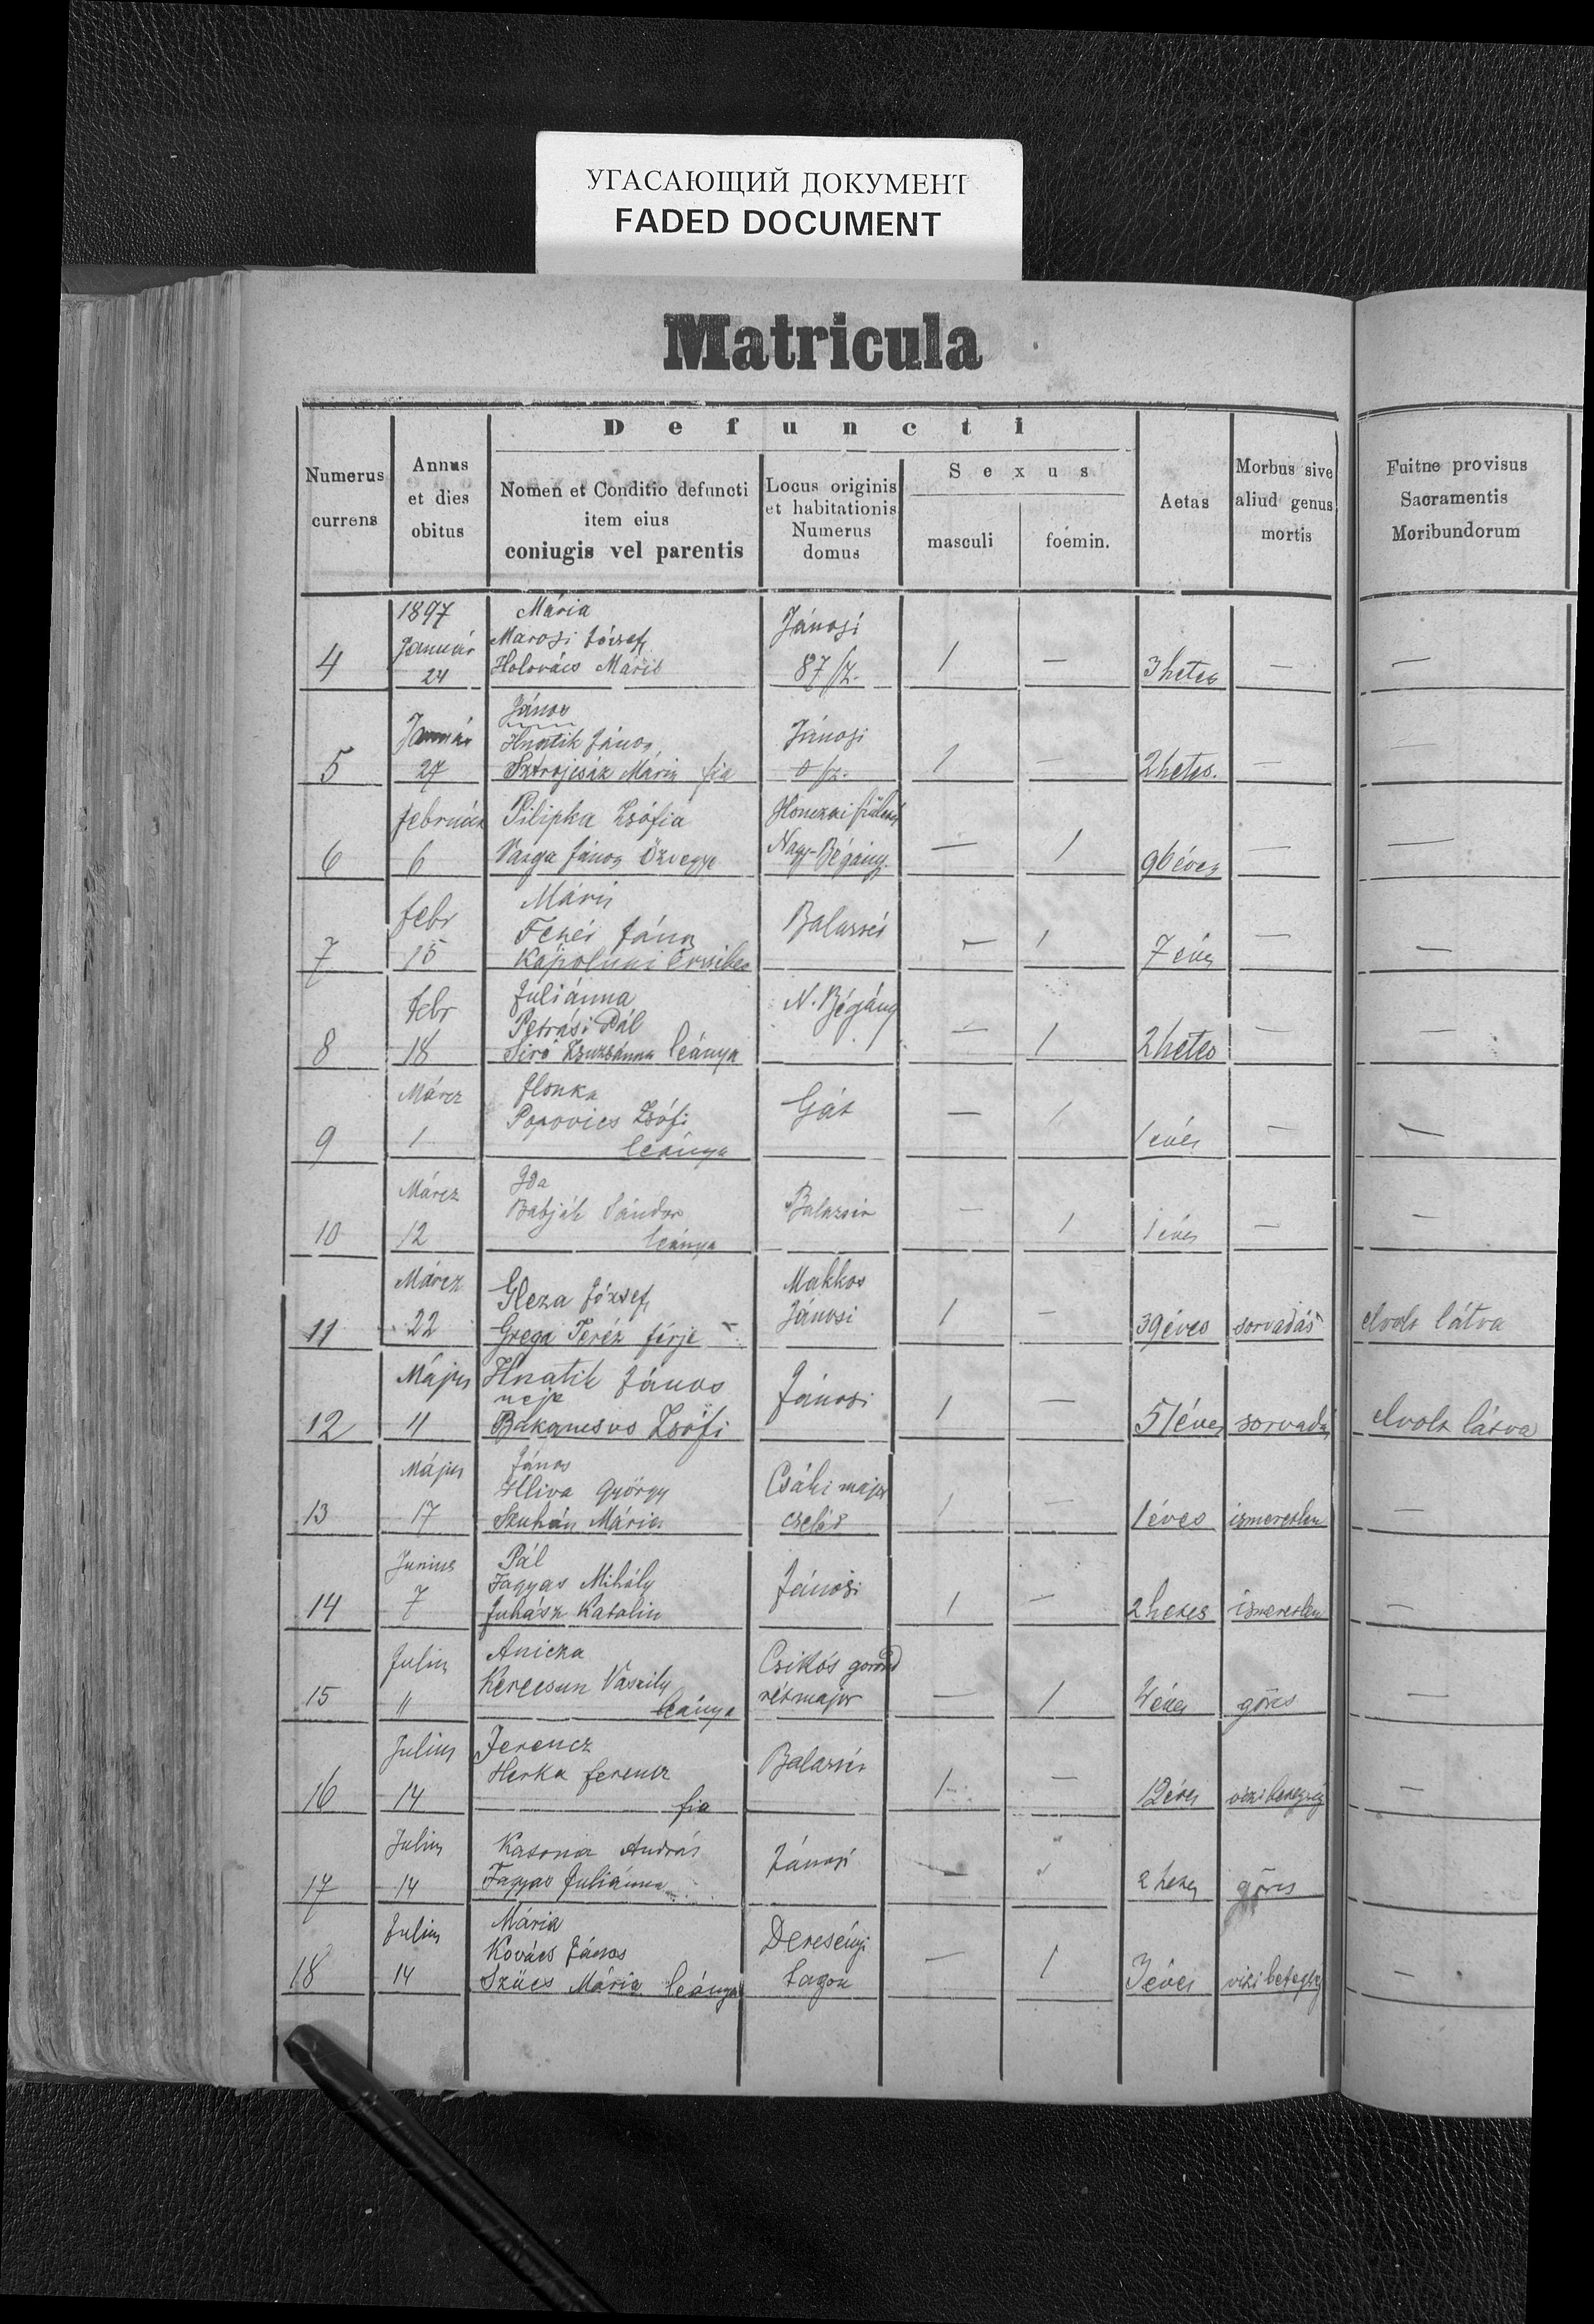 УГАСАЮЩИЙ ДОКУМЕНТ
FADED DOCUMENT
Matricula
Defuncti
Numerus currens
Annus et dies obitus
Nomen et Conditio defuncti item eius coniugis vel parentis
Locus originis et habitationis Numerus domus
Sexus
masculi
foemin.
Aetas
Morbus sive aliud genus mortis
Fuitne provisus Sacramentis Moribundorum
1897 Mária
Január Marosi József Jánosi
4 24 Holovács Mária 87 sz. 1 — 3 hetes — —
János
Január Hnatik János Jánosi
5 27 Mária fia 1 — 2 hetes. — —
február Pilipka Zsófia
6 6 Varga János özvegye Nagy-Bégány — 1 96 éves — —
Mária
febr Fehér János Balazsér
7 15 Kápolnai — 1 7 éves — —
Juliánna
febr Petrási Pál N. Bégány
8 18 Siró Zsuzsánna leánya — 1 2 hetes — —
Márcz Ilonka
Popovics Zsófi Gát
9 1 leánya — 1 1 éves — —
Márcz Ida
Babják Sándor Balazsér
10 12 leánya — 1 1 éves — —
Márcz Makkos
Gleza József Jánosi
11 22 Grega Teréz férje 1 — 39 éves sorvadás el volt látva
Május Hnatik János Jánosi
neje
12 11 Zsófi 1 — 51 éves sorvadás el volt látva
Május János Csáki major
Hliva György
13 17 Szuhán Mária cseléd 1 — 1 éves ismeretlen —
Junius Pál
Fagyas Mihály Jánosi
14 7 Juhász Katalin 1 — 2 hetes ismeretlen —
Julius Aniczka Csikós goród
Kerecsun Vaszily rétmajor
15 11 leánya — 1 éves görcs —
Julius Ferencz
Herka Ferencz Balazsér
16 14 fia 1 — 12 éves vizi betegség —
Julius Katona András Jánosi
17 14 Fagyas Juliánna — 2 hetes görcs
Julius Mária
Kovács János Dercsényi
18 14 Szücs Mária leánya tagon — 1 3 éves vizi betegség —